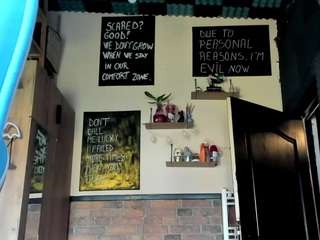 SCARED?
GOOD!
WE DON'T GROW
WHEN WE STAY
IN OUR
COMFORT ZONE.
DUE TO
PERSONAL
REASONS, I'M
EVIL NOW
DON'T
CALL
ME LUCKY
I FAILED
MORE TIMES
THAN YOU